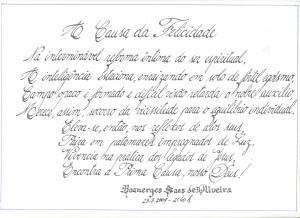 A Causa da Felicidade
Na interminável reforma íntima do ser espiritual,
A inteligência estaciona, enraizando em solo de fértil egoísmo,
Campo opaco é formado e difícil visão retarda o nobre auxílio,
Merece, assim, socorro da vicissitude para o equilíbrio individual,
Eleva-se, então, nos reflexos de atos seus,
Paira em patamares impregnados de luz,
Vivencia na prática dos legados de Jesus,
Encontra a Prima Causa, nosso Deus!
Boanerges Saes de Oliveira